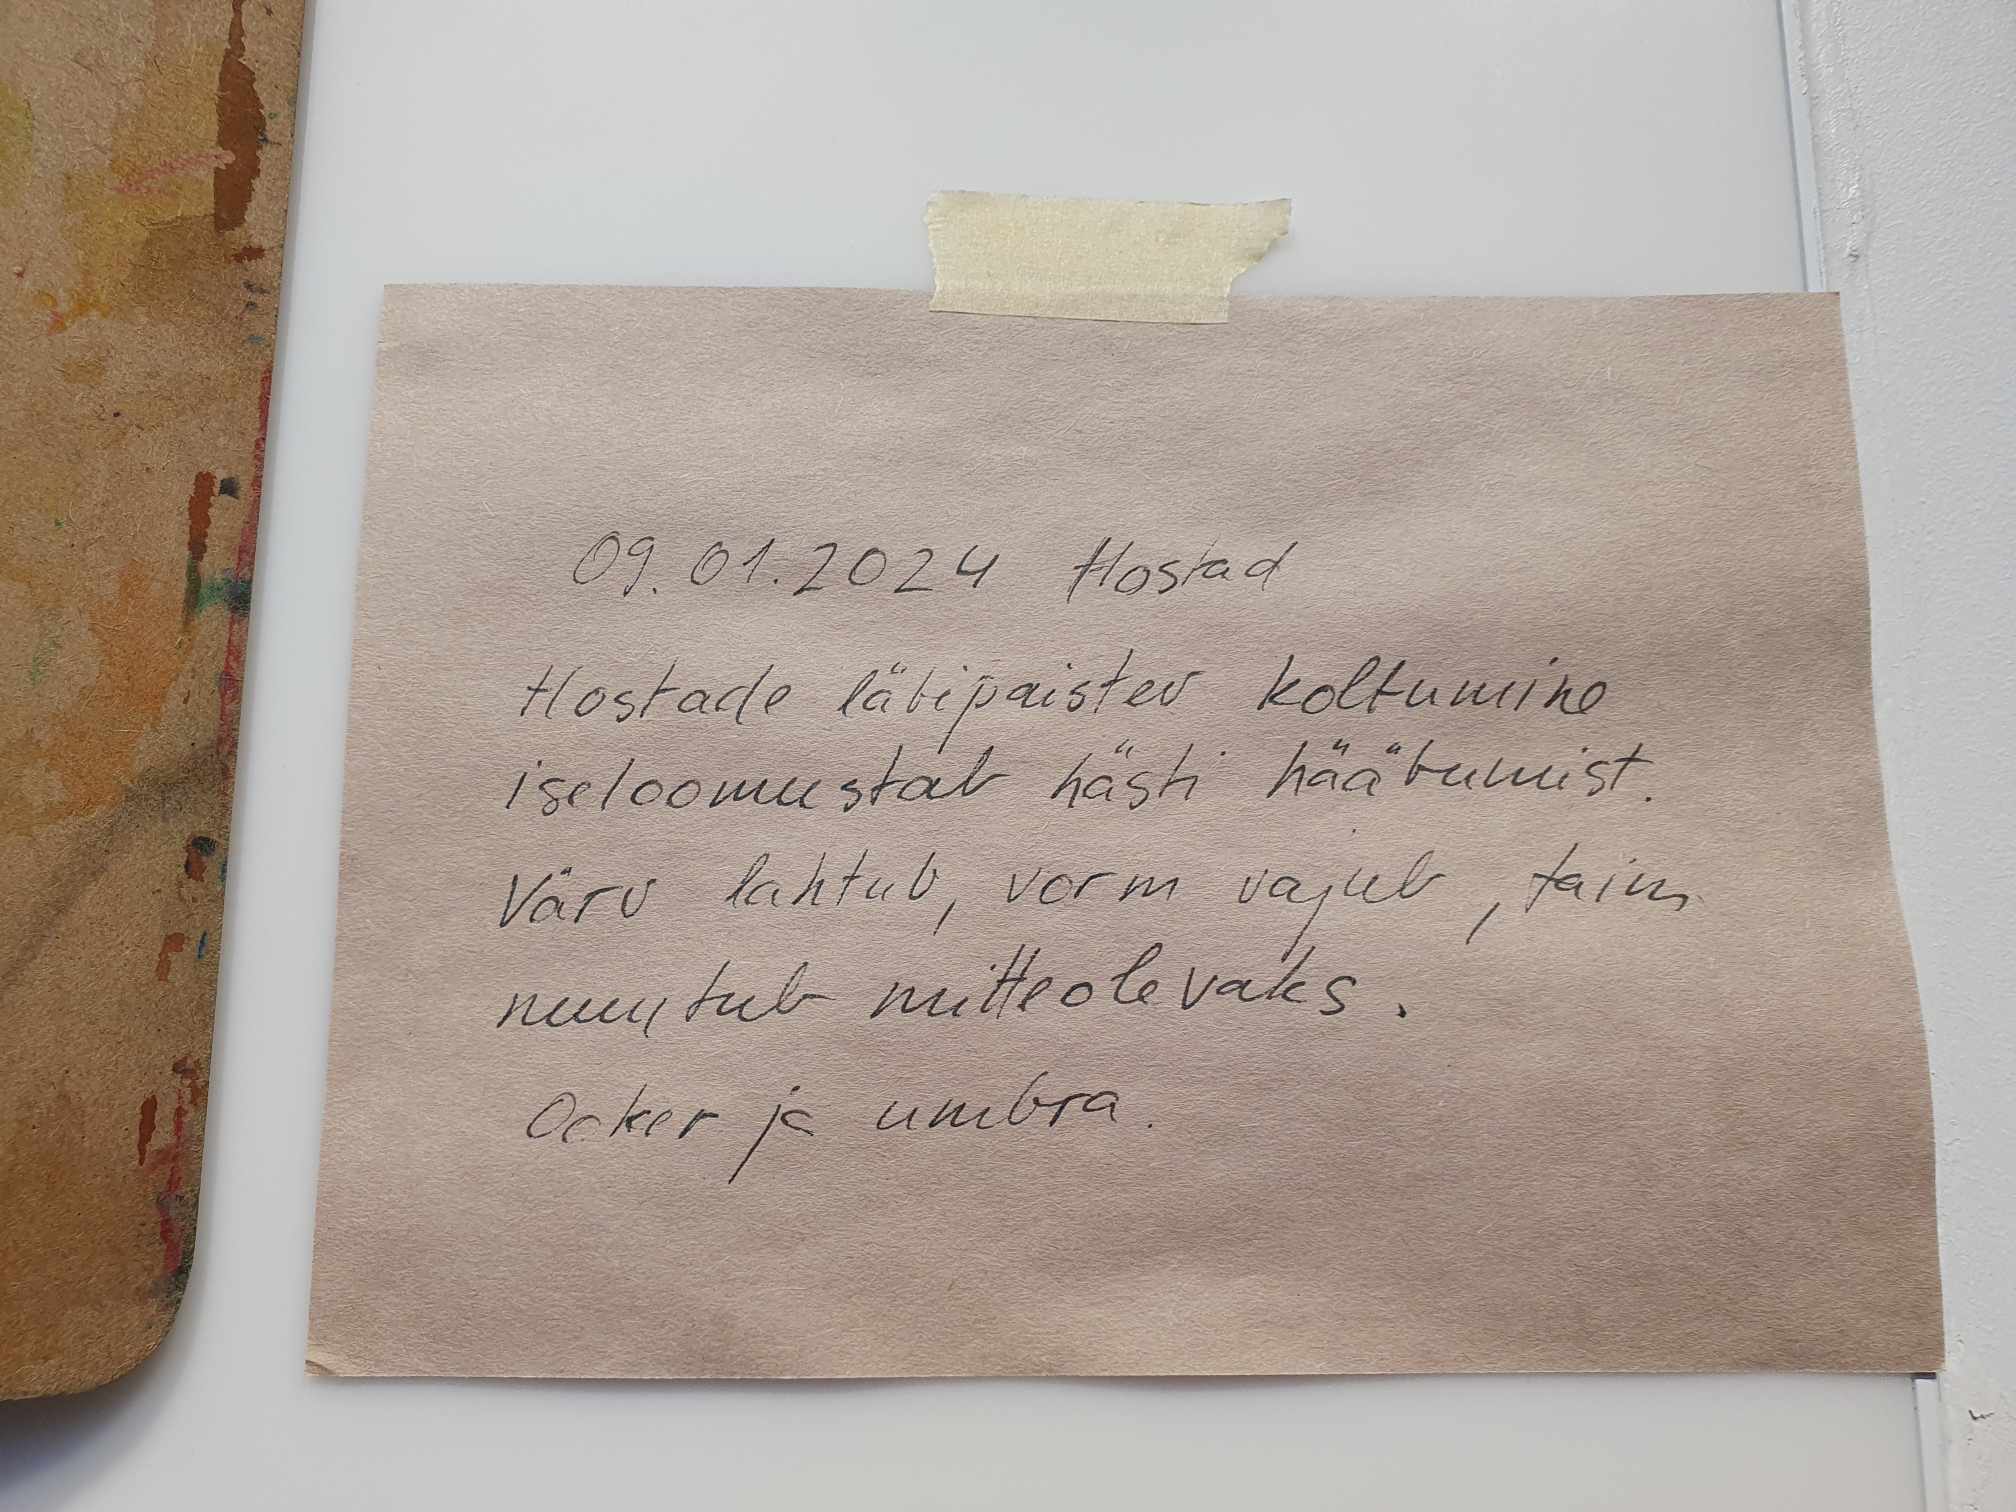 09.01.2024 Hostad
Hostade läbipaistev koltumine
iseloomustab hästi hääbumist.
Värv lahtub, vorm vajub, taim
muutub mitteolevaks.
Ooker ja umbra.